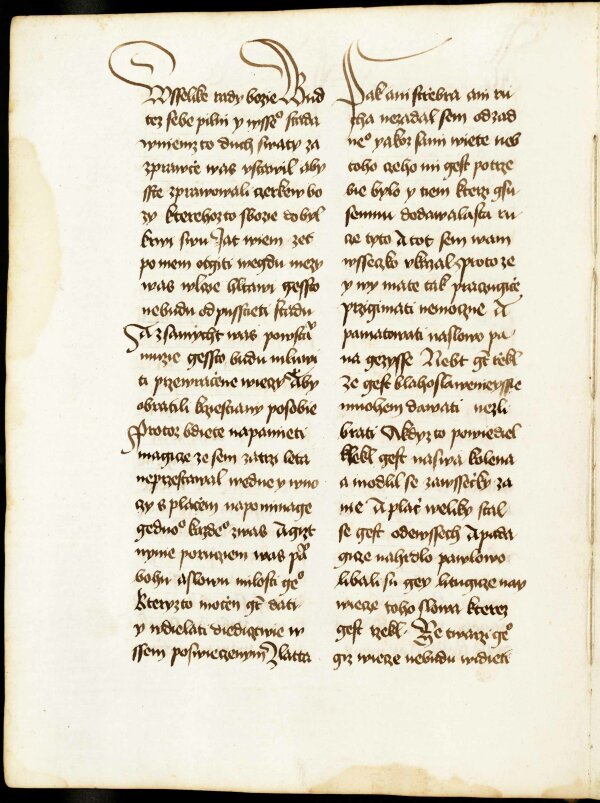 Wsselike rady bozie Bud
tez sebe pilni y wsse° stada
wniemz to duch swaty za
zprawce was vstawil aby
sste zprawowali czerkew bo
zy kterehozto sboze dobyl
krwi swu Jat wiem zet
po mem otgiti wegdu mezy
was wlcie hltawi gessto
nebudu od pusstieti stadu
A z samycht was powsta
muzie gessto budu mluwi
ti przewracene wiecy Aby
obratili krzestiany po sobie
Protoz bdiete napamieti
magicze ze sem zatrzi leta
neprzestawal wedne y wno
czy s placzem napominage
gedno° kazde° zwas A gizt
nynie poruczem was pa
bohu a slowu milosti ge°
kteryzto mocen gt dati
y vdielati diedictwie w
ssem poswieczenym Zlatta
Pak ani strzebra ani ru
cha nezadal sem odzad
ne° yakoz sami wiete neb
toho czeho mi gest potrze
bie bylo y tiem kterzi gsu
semnu dodawalasta ru
cze tyto A tot sem wam
wsseczko vkazal Proto ze
y wy mate tak praczugicze
przigimati nemoczne A
pamatowati na slowo pa
na gezisse Nebt gt rzekl
Ze gest blahoslaweneysse
mnohem dawati nezli
brati A kdyz to powiediel
klekl gest naswa kolena
a modlil se zawsseczky za
nie A placz weliky stal
se gest odewssech A pada
gicze nahrdlo pawlowo
libali su gey litugicze nay
wiecze toho slowa kterez
gest rzekl Ze twarzi ge°
giz wiecze nebudu widieti